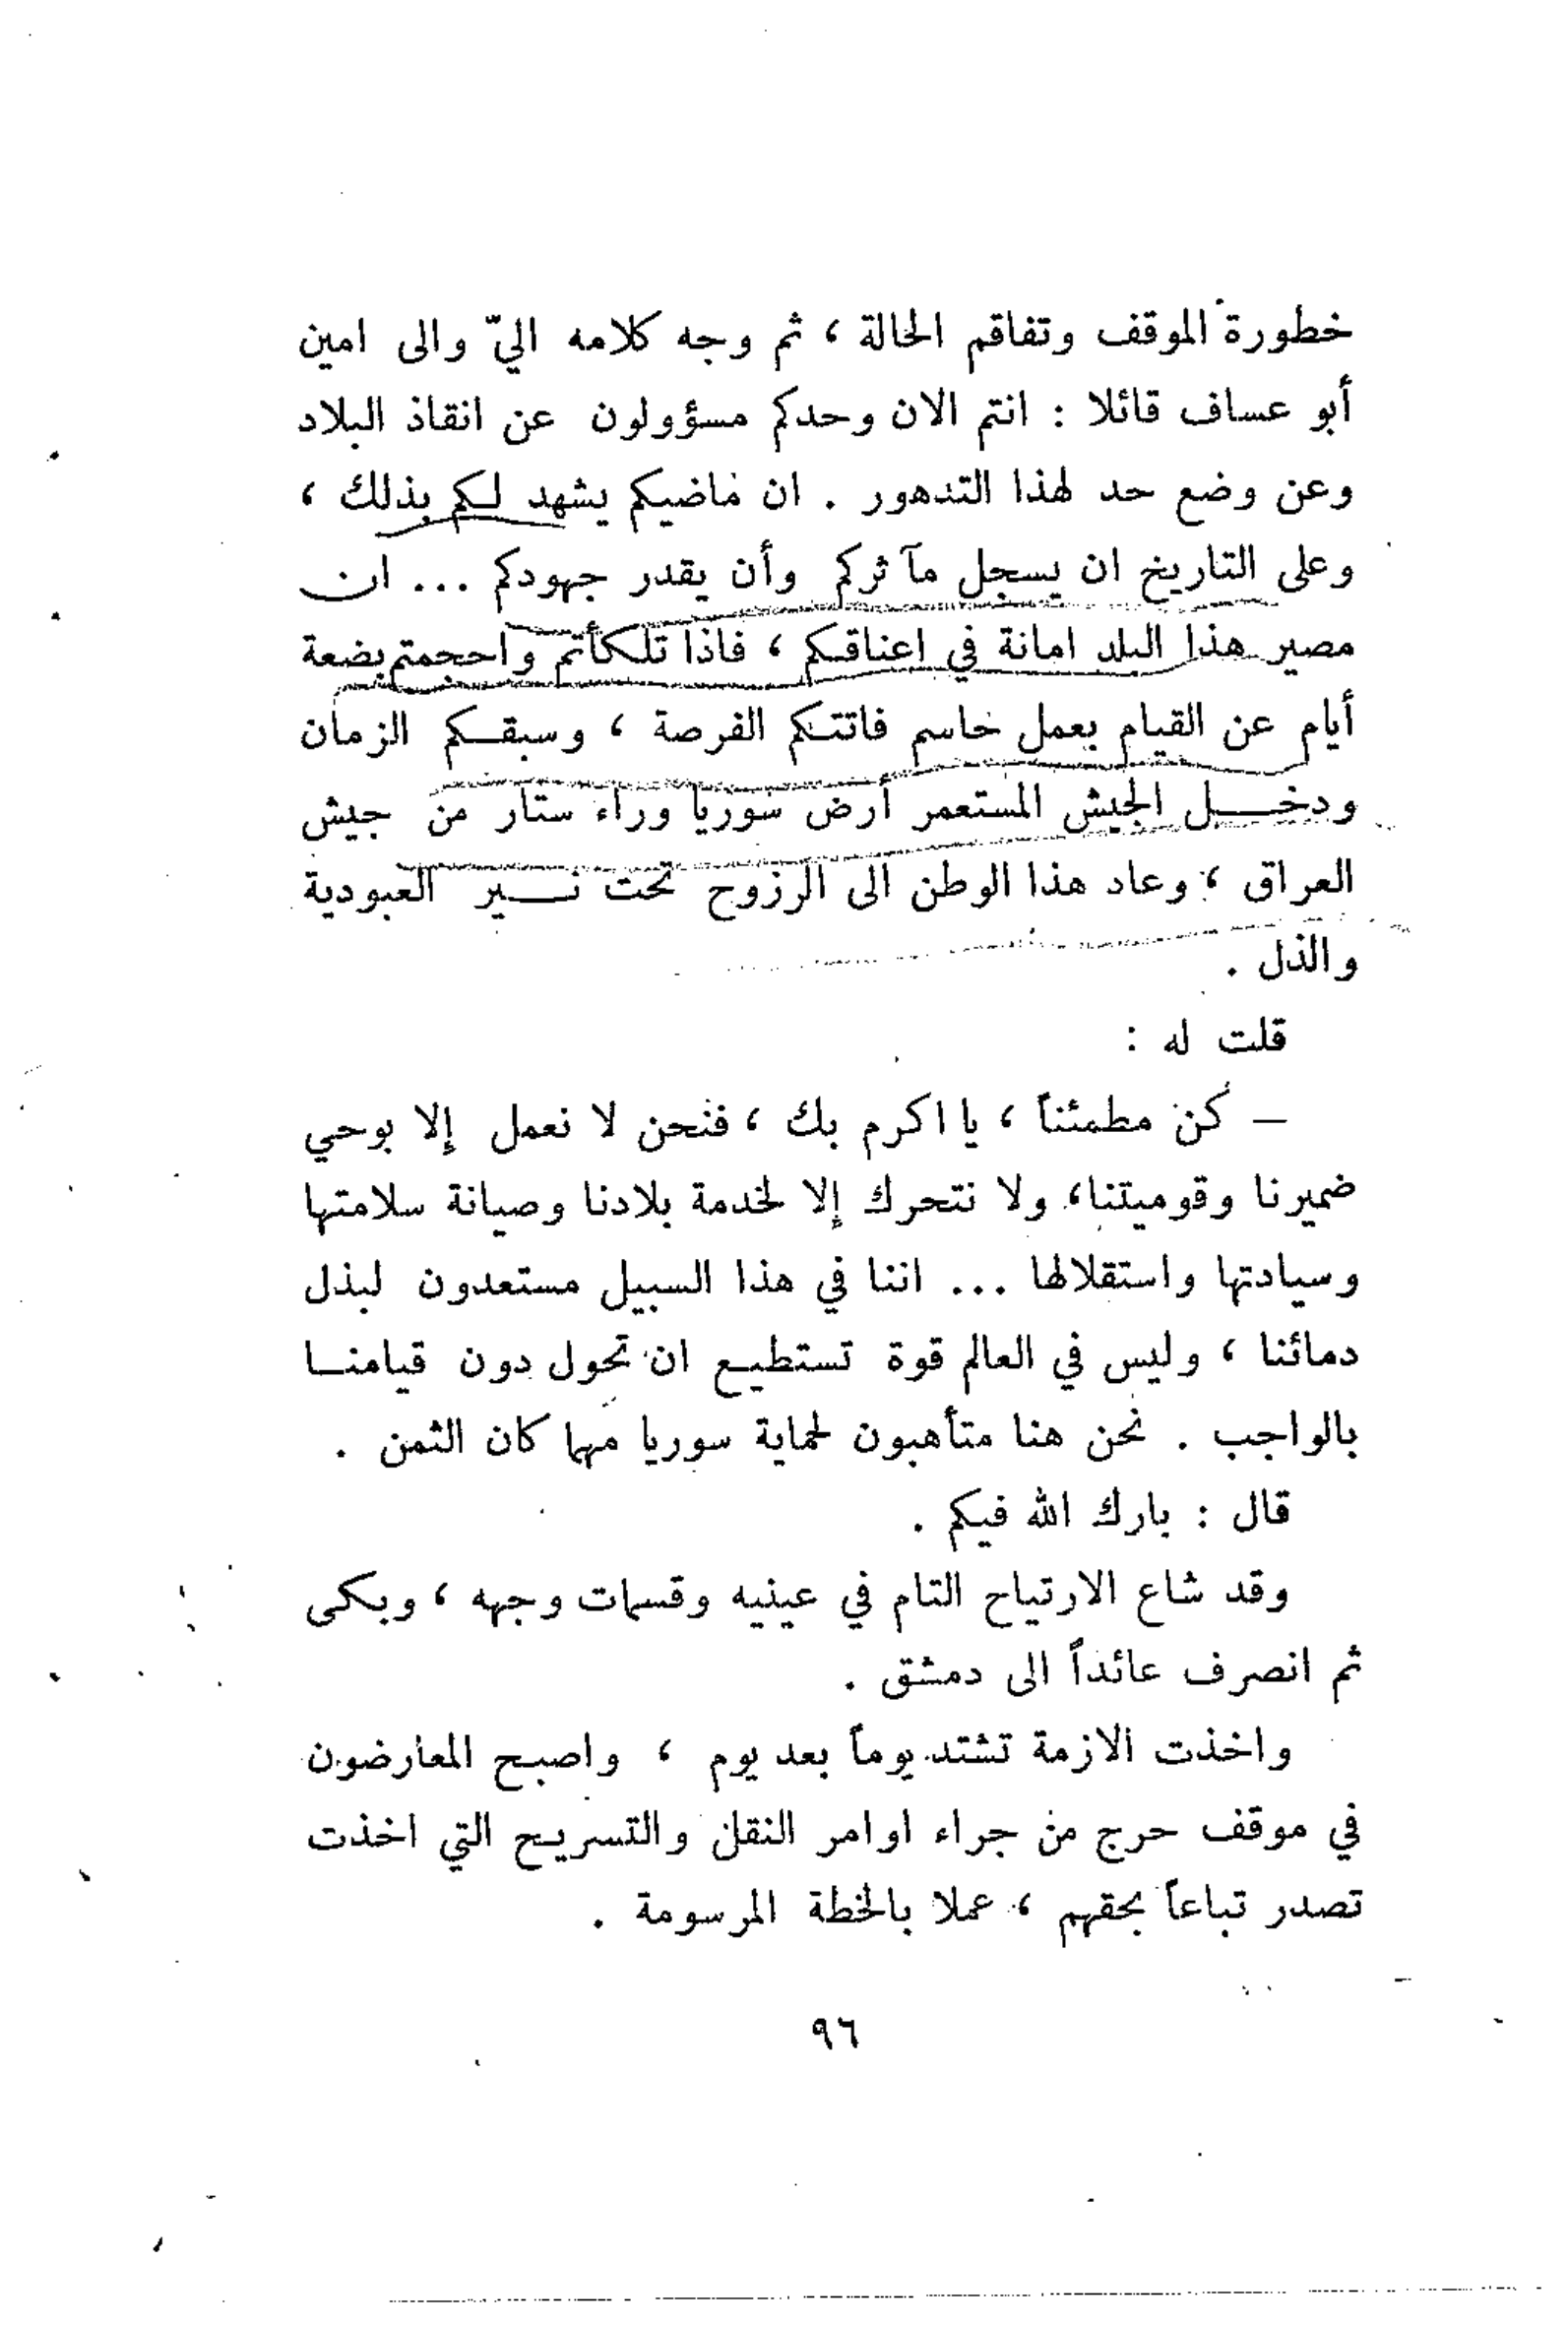 خطورة الموقف وتفاقم الحالة ، ثم وجه كلامه اليّ والى امين
أبو عساف قائلا : انتم الان وحدكم مسؤولون عن انقاذ البلاد
وعن وضع حد لهذا التدهور . ان ماضيكم يشهد لكم بذلك ،
وعلى التاريخ ان يسجل مآثركم وأن يقدر جهودكم ... ان
مصير هذا البلد امانة في اعناقكم ، فاذا تلكأتم واحجمتم بضعة
أيام عن القيام بعمل حاسم فاتتكم الفرصة ، وسبقكم الزمان
ودخل الجيش المستعمر أرض سوريا وراء ستار من جيش
العراق ، وعاد هذا الوطن الى الرزوح تحت نير العبودية
والذل .
قلت له :
— كن مطمئناً ، يا اكرم بك ، فنحن لا نعمل إلا بوحي
ضميرنا وقوميتنا ، ولا نتحرك إلا لخدمة بلادنا وصيانة سلامتها
وسيادتها واستقلالها ... اننا في هذا السبيل مستعدون لبذل
دمائنا ، وليس في العالم قوة تستطيع ان تحول دون قيامنا
بالواجب . نحن هنا متأهبون لحماية سوريا مهما كان الثمن .
قال : بارك الله فيكم .
وقد شاع الارتياح التام في عينيه وقسمات وجهه ، وبكى
ثم انصرف عائداً الى دمشق .
واخذت الازمة تشتد يوماً بعد يوم ، واصبح المعارضون
في موقف حرج من جراء اوامر النقل والتسريح التي اخذت
تصدر تباعاً بحقهم ، عملا بالخطة المرسومة .
٩٦